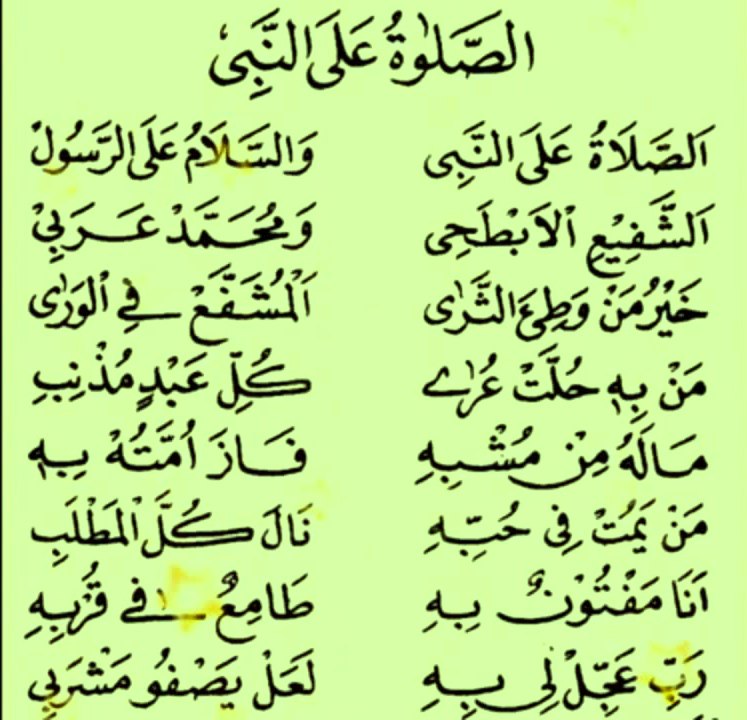 الصَّلٰوةُ عَلَى النَّبِىْ
اَلصَّلَاةُ عَلَى النَّبِى وَالسَّلَامُ عَلَى الرَّسُولْ
اَلشَّفِيْعِ اْلاَبْطَحِى وَمُحَمَّدْ عَرَبِيْ
خَيْرُ مَنْ وَطِئَ الثَّرٰى اَلْمُشَفَّعْ فِي الْوَرٰى
مَنْ بِهِ حُلَّتْ عُرٰى كُلِّ عَبْدٍ مُذْنِبِ
مَالَهُ مِنْ مُشْبِهِ فَازَ اُمَّتُهُ بِهِ
مَنْ يَمُتْ فِى حُبِّهِ نَالَ كُلَّ الْمَطْلَبِ
اَنَا مَفْتُوْنٌ بِهِ طَامِعٌ فِي قُرْبِهِ
رَبِّ عَجِّلْ لِى بِهِ لَعَلْ يَصْفُو مَشْرَبِي